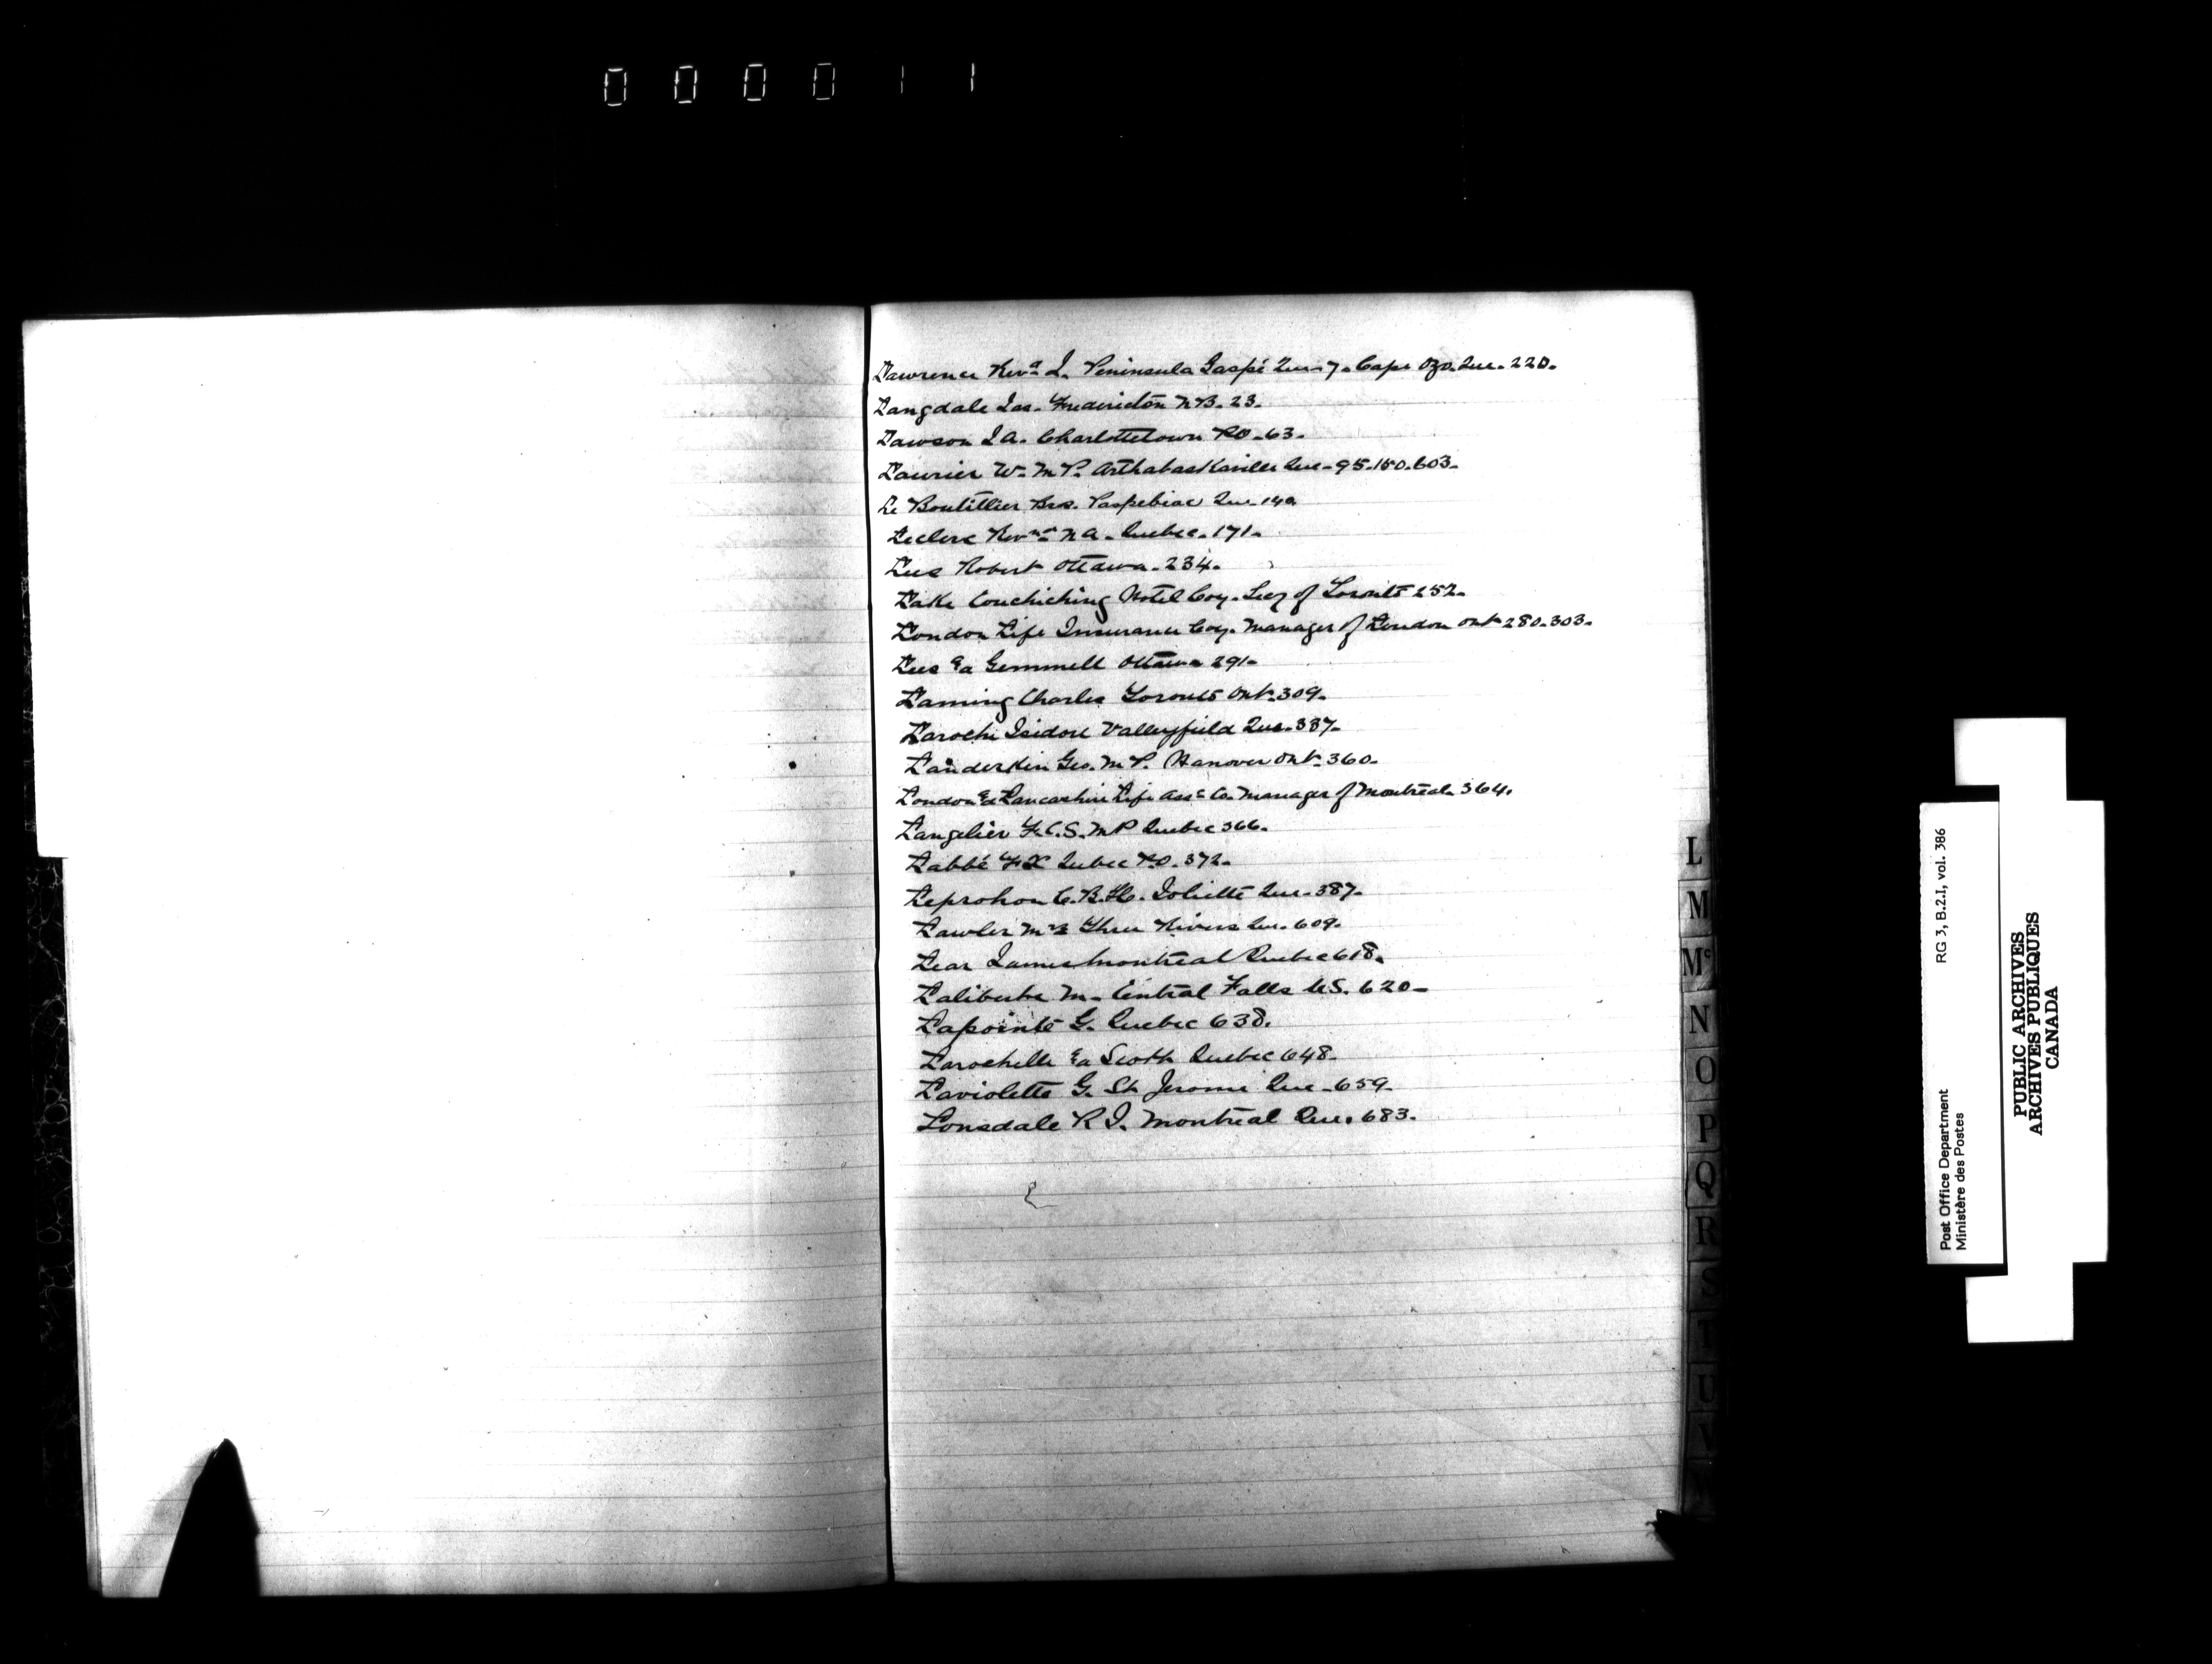 000011
Lawrence Revd J. Peninsula Gaspé Que. 7. Cape Ozo. Que. 220.
Langdale Jas. Fredericton N.B. 23.
Lawson J A. Charlottetown P.O. 63.
Laurier W. M.P. Arthabaskaville Que. 95.150.603.
Le Boutillier Bros. Paspebiac Que. 140
Leclerc N A. Quebec. 171.
Lees Robert Ottawa. 234.
Lake Couchiching Hotel Coy. Secy of Toronto 252.
London Life Insurance Coy. Manager of London Ont 280.303.
Lees & Gemmell Ottawa 291.
Laming Charles Toronto Ont. 309.
Laroche Isidore Valleyfield Que. 337.
Landerkin Geo. M.P. Hanover Ont. 360.
London & Lancashire Life Assce Co. Manager of Montreal. 364.
Langelier F.C.S. M P Quebec 366.
Labbé F X Quebec P.O. 372.
Leprohon C.B.H. Joliette Que. 387.
Lawler Mrs Three Rivers Que. 609.
Lear James Montreal Quebec 618.
Laliberte M. Central Falls U.S. 620
Lapointe G. Quebec 638.
Larochelle & Scott Quebec 648.
Laviolette G. St Jerome Que. 659.
Lonsdale R J. Montreal Que. 683.
L
M
Mc
N
O
P
Q
R
S
T
U
V
W
Post Office Department RG 3, B.2.I, vol. 386
Ministère des Postes
PUBLIC ARCHIVES
ARCHIVES PUBLIQUES
CANADA